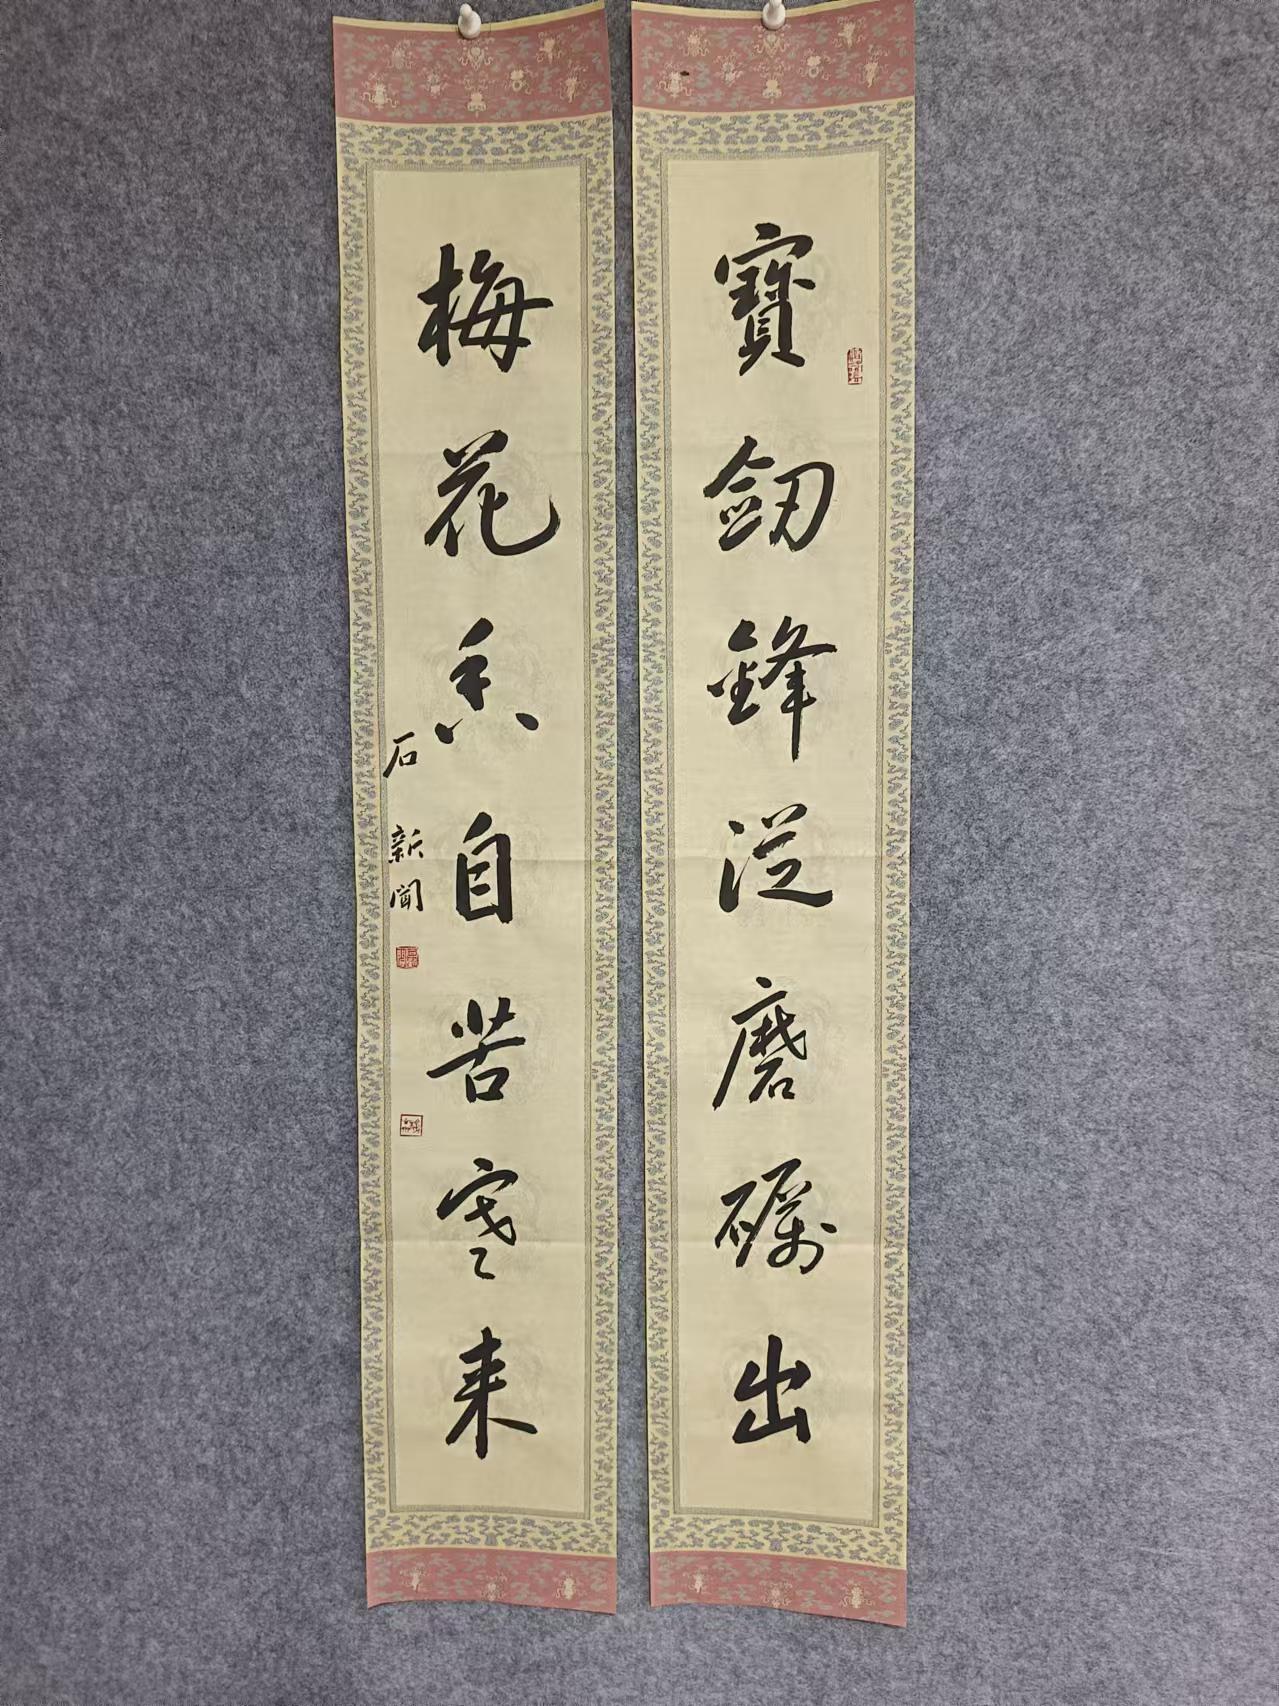 寶劒鋒從磨礪出
梅花香自苦寒来
石新聞